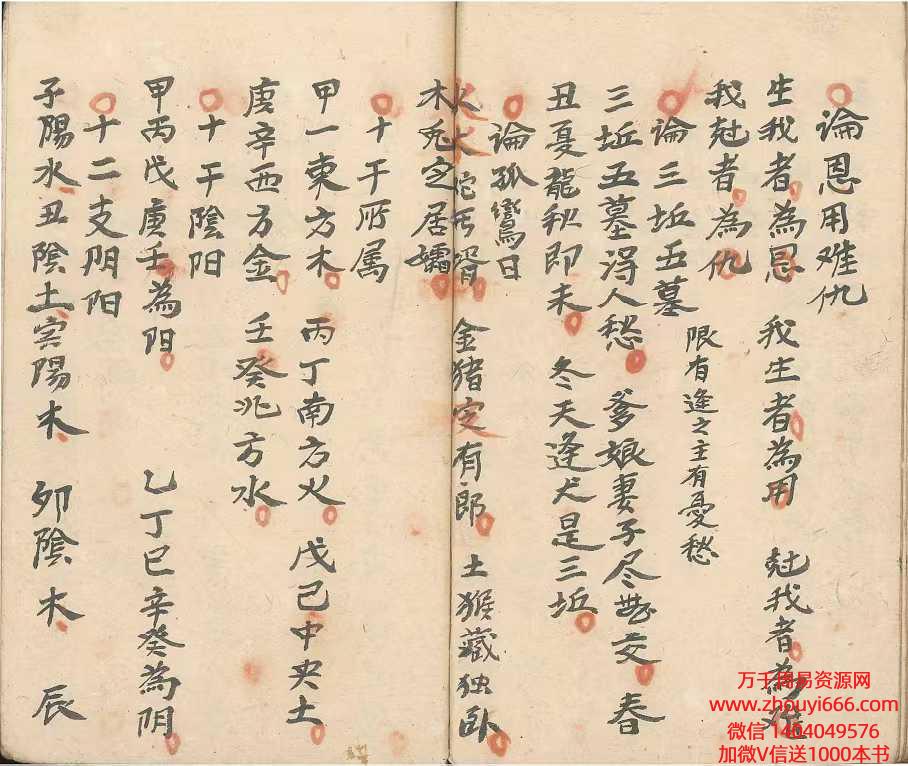 論恩用难仇
生我者為恩 我生者為用 尅我者為难
我尅者為仇
論三坵五墓 限有逢之主有憂愁
三坵五墓淂人愁 爹娘妻子尽無交 春
丑夏龍秋即未 冬天逢犬是三坵
論孤鸞日
火 金猪定有郎 土猴藏独卧
木兎定居孀
十干所属
甲一東方木 丙丁南方火 戊己中央土
庚辛西方金 壬癸北方水
十干陰阳
甲丙戊庚壬為阳 乙丁巳辛癸為阴
十二支阴阳
子陽水丑陰土寅陽木 卯陰木 辰
万千周易资源网
www.zhouyi666.com
微信 1404049576
加微V信送1000本书